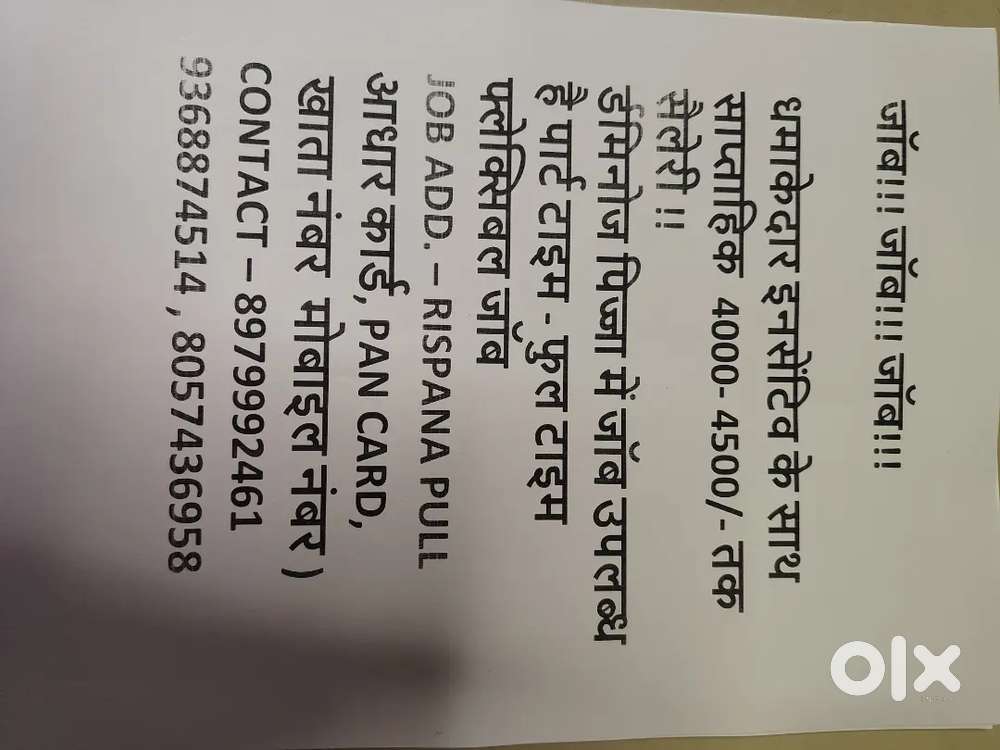 जॉब!!! जॉब!!! जॉब!!!
धमाकेदार इनसेंटिव के साथ
साप्ताहिक 4000- 4500/- तक
सैलेरी !!
डॉमिनोज पिज्जा में जॉब उपलब्ध
है पार्ट टाइम - फुल टाइम
फ्लेक्सिबल जॉब
JOB ADD. – RISPANA PULL
आधार कार्ड, PAN CARD,
खाता नंबर मोबाइल नंबर )
CONTACT – 8979992461
9368874514 , 8057436958
olx